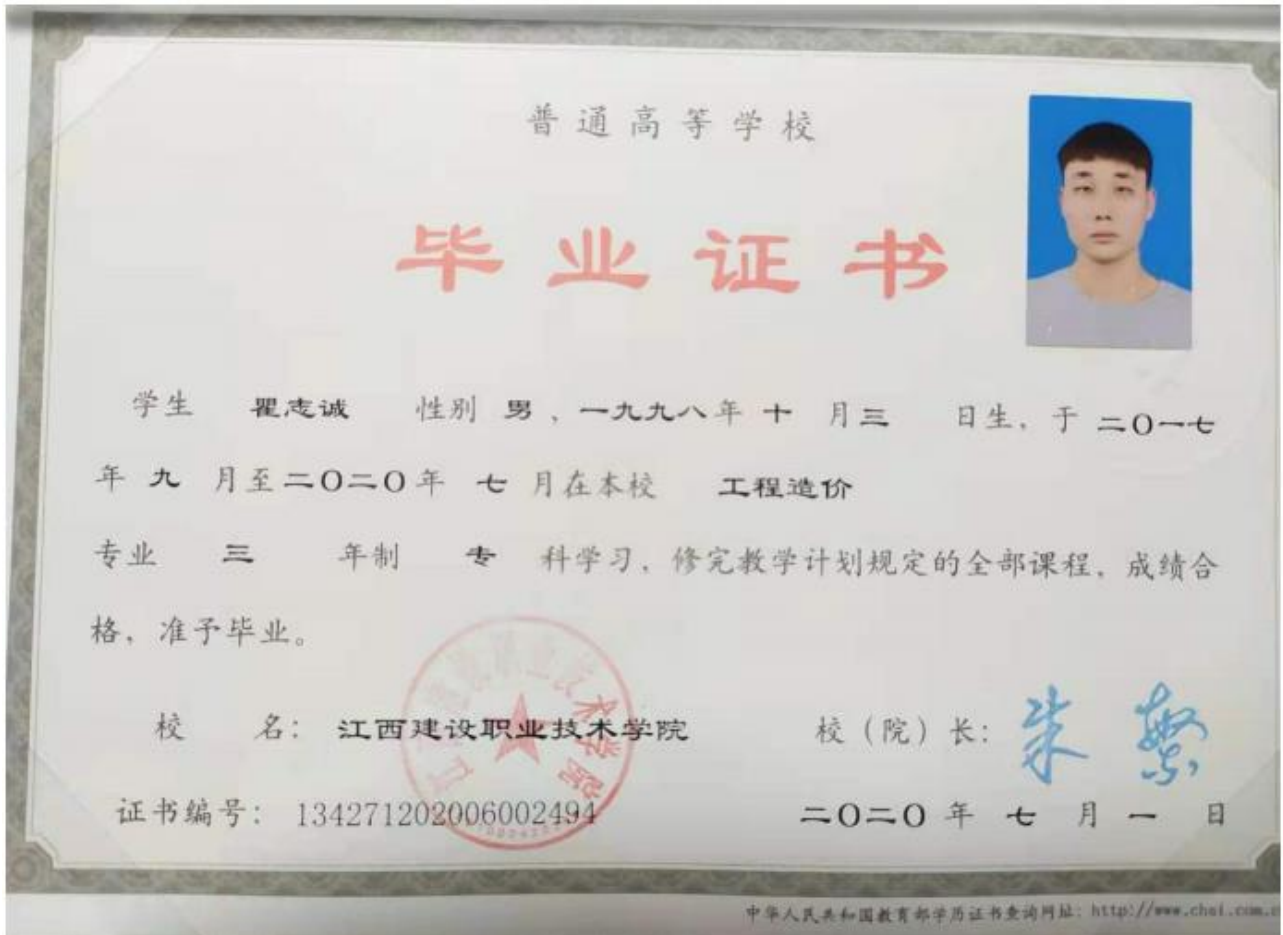 普通高等学校
毕业证书
学生 瞿志诚 性别 男，一九九八年 十 月三 日生，于 二〇一七
年 九 月至二〇二〇年 七 月在本校 工程造价
专业 三 年制 专 科学习，修完教学计划规定的全部课程，成绩合
格，准予毕业。
校 名：江西建设职业技术学院 校（院）长：朱繁
证书编号：134271202006002494 二〇二〇年 七 月 一 日
中华人民共和国教育部学历证书查询网址：http://www.chsi.com.c